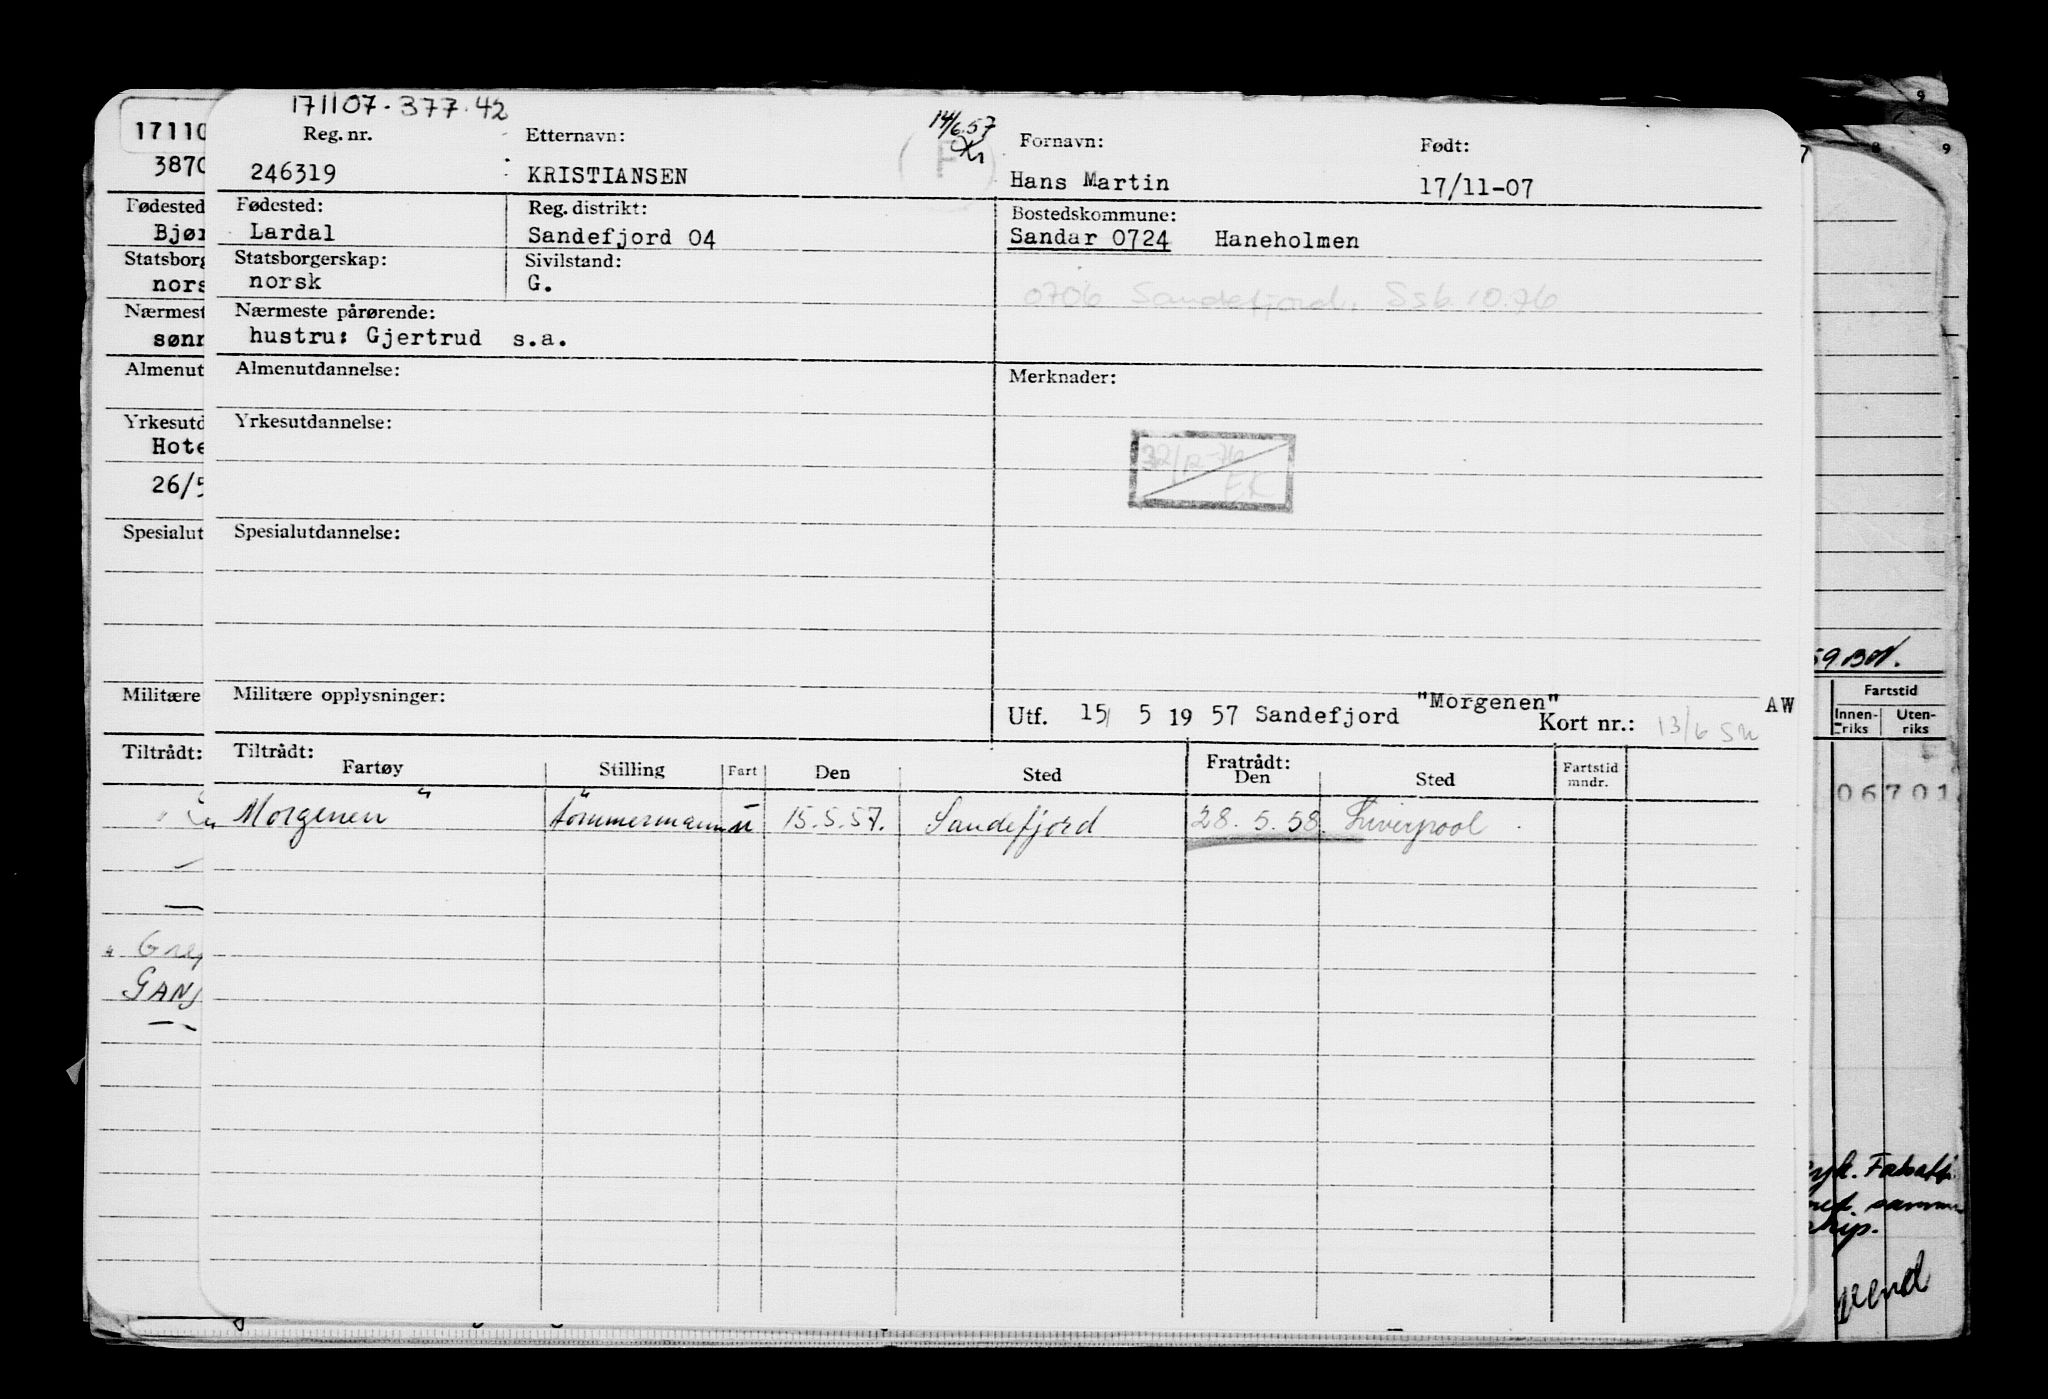 171107.377.42
Reg. nr. Etternavn: 14/6.57 Kr Fornavn: Født:
246319 KRISTIANSEN ( F ) Hans Martin 17/11-07
Fødested: Reg. distrikt: Bostedskommune:
Lardal Sandefjord 04 Sandar 0724 Haneholmen
Statsborgerskap: Sivilstand:
norsk G.
0706 Sandefjord. Ssb.10.76
Nærmeste pårørende:
hustru: Gjertrud s.a.
Almenutdannelse: Merknader:
Yrkesutdannelse:
EK
Spesialutdannelse:
Militære opplysninger:
"Morgenen" AW
Utf. 15/ 5 19 57 Sandefjord Kort nr.: 13/6
Tiltrådt: Fratrådt:
Fartøy Stilling Fart Den Sted Den Sted Fartstid mndr.
"Morgenen" tømmermann u 15.5.57. Sandefjord 28.5.58. Liverpool
17110
3870
Fødested
Bjør
Statsborg
nors
Nærmest
sønn
Almenut
Yrkesutd
Hote
26/5
Spesialut
Militære
Tiltrådt:
GANS
9
7 8 9
59
Fartstid
Innen-riks Uten-riks
06701